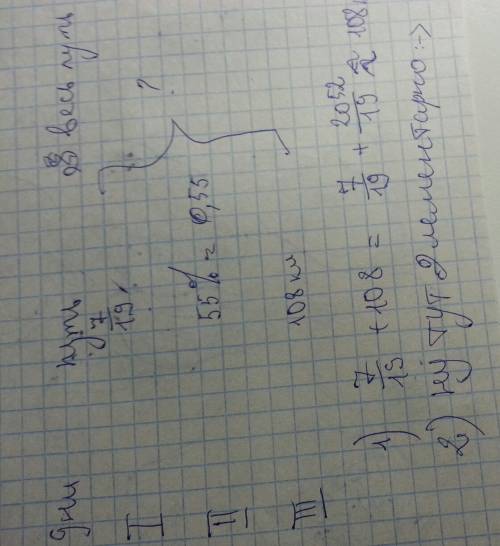 Дни путь весь путь
I 7/19
II 55% = 0,55 ?
III 108 км
1) 7/19 + 108 = 7/19 + 2052/19 ≈ 108
2) ну тут элементарно :->